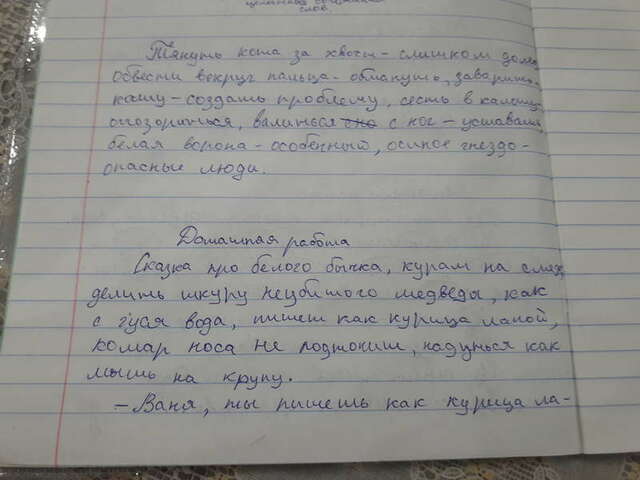 цельные сочетания
слов.
Тянуть кота за хвост - слишком долго
обвести вокруг пальца - обмануть, заварить
кашу - создать проблему, сесть в калошу
опозориться, валиться с ног - уставать
белая ворона - особенный, осиное гнездо -
опасные люди.
Домашняя работа
Сказка про белого бычка, курам на смех,
делить шкуру неубитого медведя, как
с гуся вода, пишет как курица лапой,
комар носа не подточит, надуться как
мышь на крупу.
- Ваня, ты пишешь как курица ла-